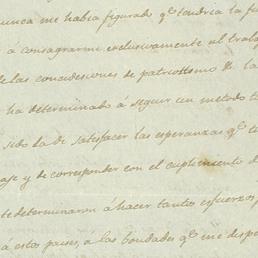 nunca me había figurado q.e tendría la fu
a consagrarme exclusivamente al traba
de las concidesciones de patriotismo &. la
ha determinado á seguir un metodo t
sido da de satisfacer las esperanzas q.e t
ase y de corresponder con el cuplimiento d
te determinaron á hacer tantos esfuerzos,
á estos paises, a las bondades q.e me disp